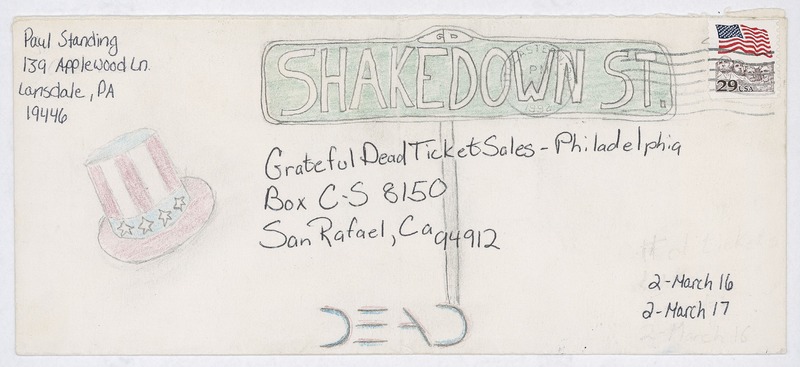 Paul Standing
139 Applewood Ln.
Lansdale, PA
19446
GD
SHAKEDOWN ST.
29 USA
Grateful Dead Ticket Sales - Philadelphia
Box C-S 8150
San Rafael, Ca 94912
2-March 16
2-March 17
DEAD